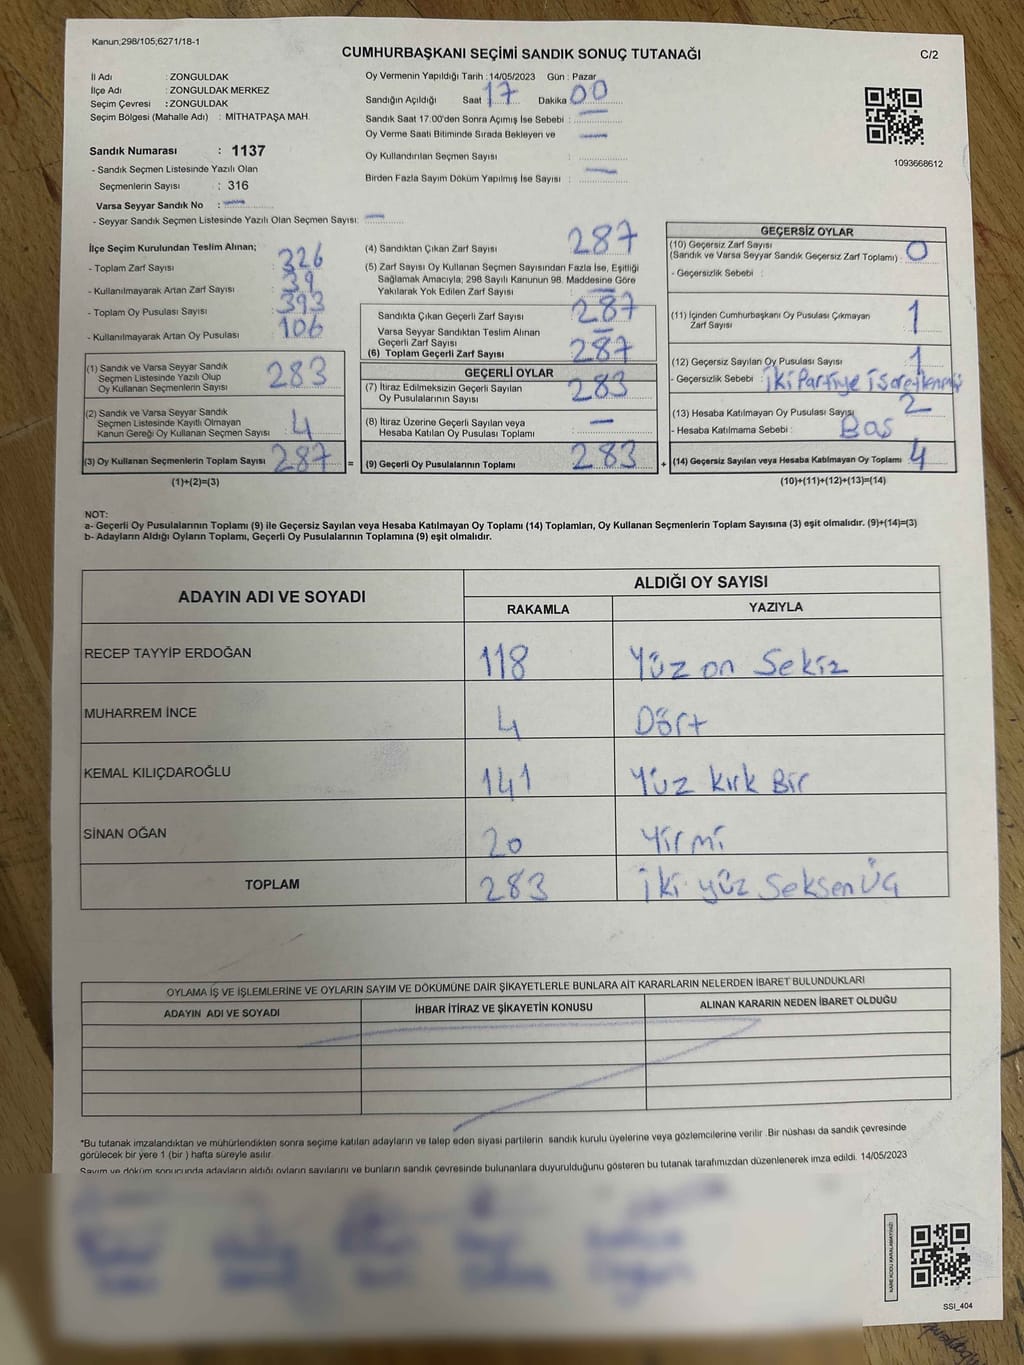 Kanun,298/105,6271/18-1
CUMHURBAŞKANI SEÇİMİ SANDIK SONUÇ TUTANAĞI
C/2
İl Adı : ZONGULDAK
İlçe Adı : ZONGULDAK MERKEZ
Seçim Çevresi : ZONGULDAK
Seçim Bölgesi (Mahalle Adı) : MİTHATPAŞA MAH.
Sandık Numarası : 1137
- Sandık Seçmen Listesinde Yazılı Olan
Seçmenlerin Sayısı : 316
Varsa Seyyar Sandık No : —
- Seyyar Sandık Seçmen Listesinde Yazılı Olan Seçmen Sayısı: —
Oy Vermenin Yapıldığı Tarih : 14/05/2023 Gün : Pazar
Sandığın Açıldığı Saat 17 Dakika 00
Sandık Saat 17:00'den Sonra Açımış İse Sebebi : —
Oy Verme Saati Bitiminde Sırada Bekleyen ve —
Oy Kullandırılan Seçmen Sayısı :
Birden Fazla Sayım Döküm Yapılmış İse Sayısı : —
1093668612
İlçe Seçim Kurulundan Teslim Alınan;
- Toplam Zarf Sayısı : 326
- Kullanılmayarak Artan Zarf Sayısı : 39
- Toplam Oy Pusulası Sayısı : 393
- Kullanılmayarak Artan Oy Pusulası : 106
(1) Sandık ve Varsa Seyyar Sandık
Seçmen Listesinde Yazılı Olup
Oy Kullanan Seçmenlerin Sayısı : 283
(2) Sandık ve Varsa Seyyar Sandık
Seçmen Listesinde Kayıtlı Olmayan
Kanun Gereği Oy Kullanan Seçmen Sayısı : 4
(3) Oy Kullanan Seçmenlerin Toplam Sayısı : 287 =
(1)+(2)=(3)
(4) Sandıktan Çıkan Zarf Sayısı : 287
(5) Zarf Sayısı Oy Kullanan Seçmen Sayısından Fazla İse, Eşitliği
Sağlamak Amacıyla, 298 Sayılı Kanunun 98. Maddesine Göre
Yakılarak Yok Edilen Zarf Sayısı : —
Sandıkta Çıkan Geçerli Zarf Sayısı : 287
Varsa Seyyar Sandıktan Teslim Alınan
Geçerli Zarf Sayısı : —
(6) Toplam Geçerli Zarf Sayısı : 287
GEÇERLİ OYLAR
(7) İtiraz Edilmeksizin Geçerli Sayılan
Oy Pusulalarının Sayısı : 283
(8) İtiraz Üzerine Geçerli Sayılan veya
Hesaba Katılan Oy Pusulası Toplamı : —
(9) Geçerli Oy Pusulalarının Toplamı : 283 +
GEÇERSİZ OYLAR
(10) Geçersiz Zarf Sayısı
(Sandık ve Varsa Seyyar Sandık Geçersiz Zarf Toplamı) : 0
- Geçersizlik Sebebi :
(11) İçinden Cumhurbaşkanı Oy Pusulası Çıkmayan
Zarf Sayısı : 1
(12) Geçersiz Sayılan Oy Pusulası Sayısı : 1
- Geçersizlik Sebebi : İki Partiye işaretlenmiş
(13) Hesaba Katılmayan Oy Pusulası Sayısı 2
- Hesaba Katılmama Sebebi : Boş
(14) Geçersiz Sayılan veya Hesaba Katılmayan Oy Toplamı : 4
(10)+(11)+(12)+(13)=(14)
NOT:
a- Geçerli Oy Pusulalarının Toplamı (9) ile Geçersiz Sayılan veya Hesaba Katılmayan Oy Toplamı (14) Toplamları, Oy Kullanan Seçmenlerin Toplam Sayısına (3) eşit olmalıdır. (9)+(14)=(3)
b- Adayların Aldığı Oyların Toplamı, Geçerli Oy Pusulalarının Toplamına (9) eşit olmalıdır.
ADAYIN ADI VE SOYADI ALDIĞI OY SAYISI
RAKAMLA YAZIYLA
RECEP TAYYİP ERDOĞAN 118 Yüz on Sekiz
MUHARREM İNCE 4 Dört
KEMAL KILIÇDAROĞLU 141 Yüz kırk Bir
SİNAN OĞAN 20 Yirmi
TOPLAM 283 iki yüz Seksen Üç
OYLAMA İŞ VE İŞLEMLERİNE VE OYLARIN SAYIM VE DÖKÜMÜNE DAİR ŞİKAYETLERLE BUNLARA AİT KARARLARIN NELERDEN İBARET BULUNDUKLARI
ADAYIN ADI VE SOYADI İHBAR İTİRAZ VE ŞİKAYETİN KONUSU ALINAN KARARIN NEDEN İBARET OLDUĞU
*Bu tutanak imzalandıktan ve mühürlendikten sonra seçime katılan adayların ve talep eden siyasi partilerin sandık kurulu üyelerine veya gözlemcilerine verilir. Bir nüshası da sandık çevresinde
görülecek bir yere 1 (bir) hafta süreyle asılır.
Sayım ve döküm sonucunda adayların aldığı oyların sayılarını ve bunların sandık çevresinde bulunanlara duyurulduğunu gösteren bu tutanak tarafımızdan düzenlenerek imza edildi. 14/05/2023
KARE KODU KARALAMAYINIZ!
SSI_404